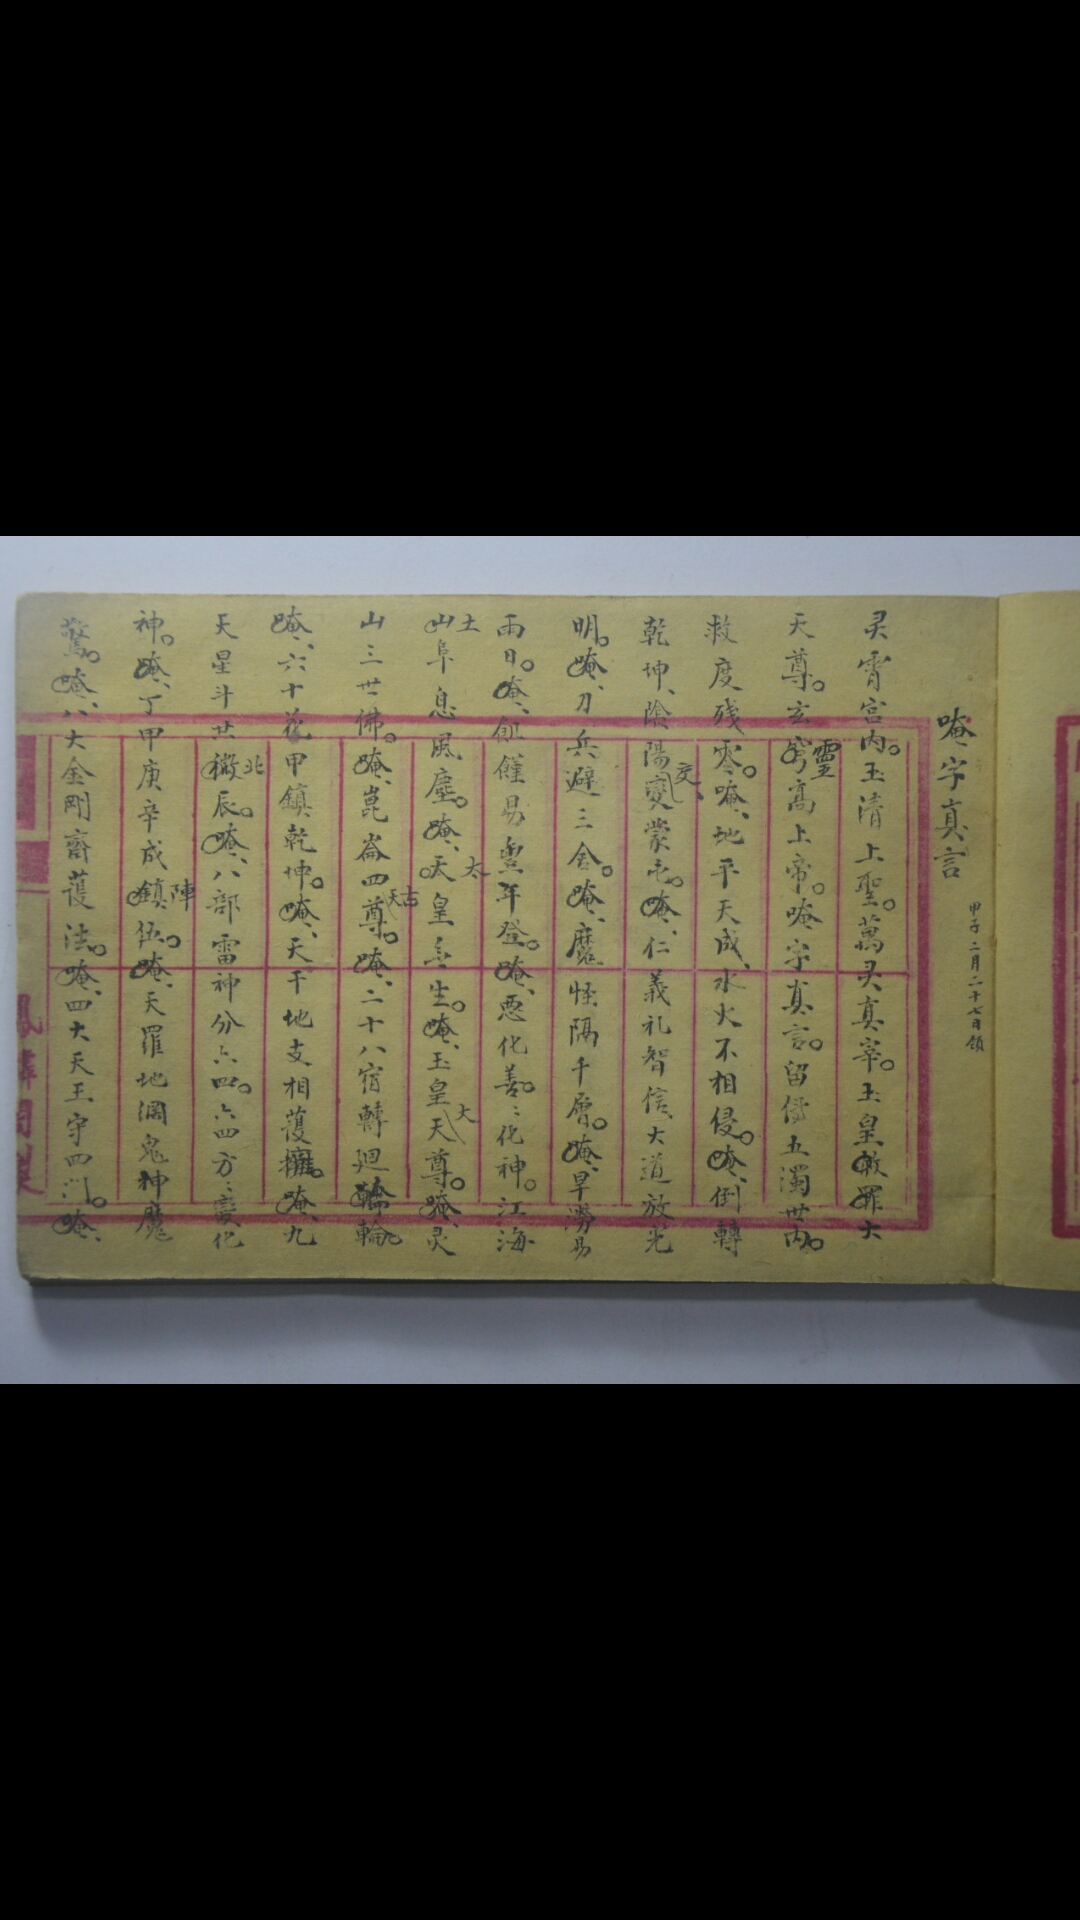 唵字真言
甲子二月二十七日領
灵霄宮内。玉清上聖。萬灵真宰。玉皇赦罪大
天尊。玄穹靈高上帝。唵字真言。留傳五濁世内。
救度殘零。唵、地平天成、水火不相侵。唵、倒轉
乾坤、陰陽變交、蒙屯。唵、仁義礼智信、大道放光
明。唵、刀兵避三舍。唵、魔怪隔千層。唵、旱澇易
雨日。唵、飢饉易豊年登。唵、悪化善。〻化神。江海
山土阜息風塵。唵、天太皇無生。唵、玉皇大天尊。唵、灵
山三世佛。唵、崑崙四尊古天。唵、二十八宿轉廻輪。
唵、六十花甲鎮乾坤。唵、天干地支相護擁。唵、九
天星斗共微北辰。唵、八部雷神分六四。六四方〻變化
神。唵、丁甲庚辛成鎮陣伍。唵、天羅地網鬼神魔
驚。唵、八大金剛齊護法。唵、四大天王守四门。唵、